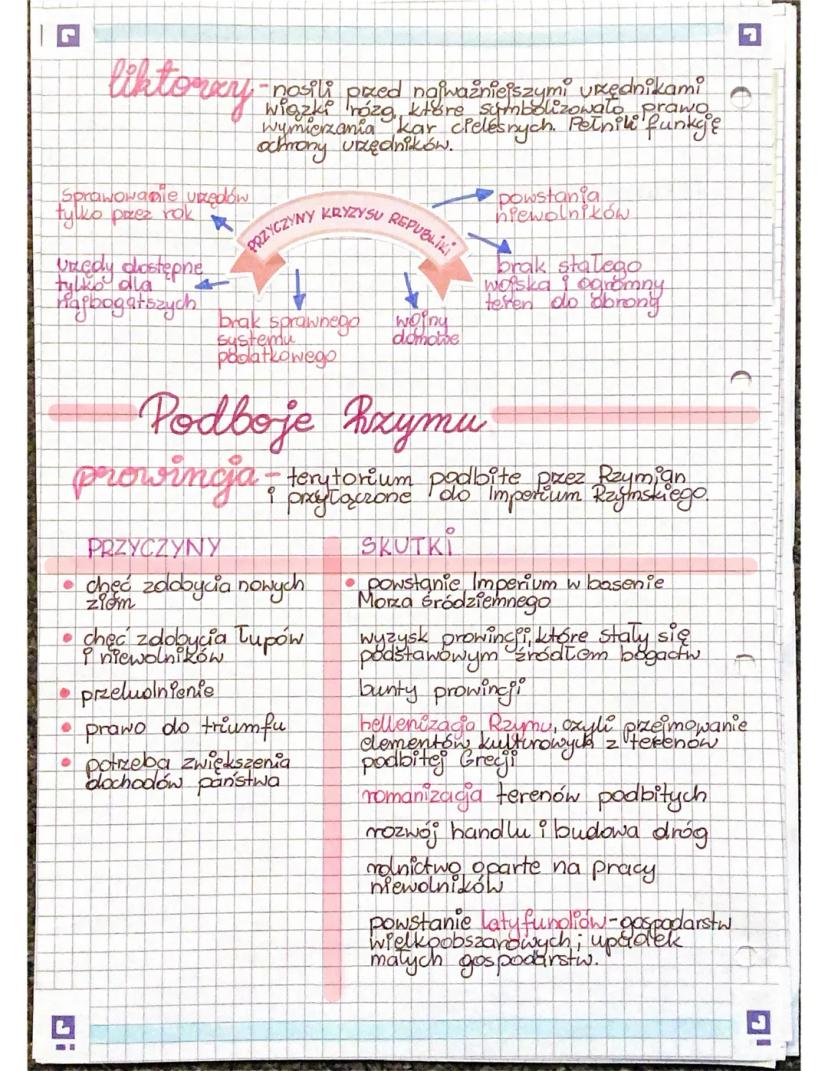 liktorzy - nosili przed najważniejszymi urzędnikami
wiązki rózg, które symbolizowało prawo
wymierzania kar cielesnych. Pełnili funkcję
ochrony urzędników.
PRZYCZYNY KRYZYSU REPUBLIKI
Sprawowanie urzędów
tylko przez rok
urzędy dostępne
tylko dla
najbogatszych
brak sprawnego
systemu
podatkowego
wojny
domowe
powstania
niewolników
brak stałego
wojska i ogromny
teren do obrony
Podboje Rzymu
prowincja - terytorium podbite przez Rzymian
i przyłączone do Imperium Rzymskiego.
PRZYCZYNY
• chęć zdobycia nowych
ziem
• chęć zdobycia łupów
i niewolników
• przeludnienie
• prawo do triumfu
• potrzeba zwiększenia
dochodów państwa
SKUTKI
• powstanie Imperium w basenie
Morza Śródziemnego
wyzysk prowincji, które stały się
podstawowym źródłem bogactw
bunty prowincji
hellenizacja Rzymu, czyli przejmowanie
elementów kulturowych z terenów
podbitej Grecji
romanizacja terenów podbitych
rozwój handlu i budowa dróg
rolnictwo oparte na pracy
niewolników
powstanie latyfundiów - gospodarstw
wielkoobszarowych; upadek
małych gospodarstw.